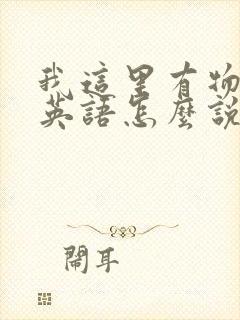 我這里有物
英語怎麼說
鬧耳